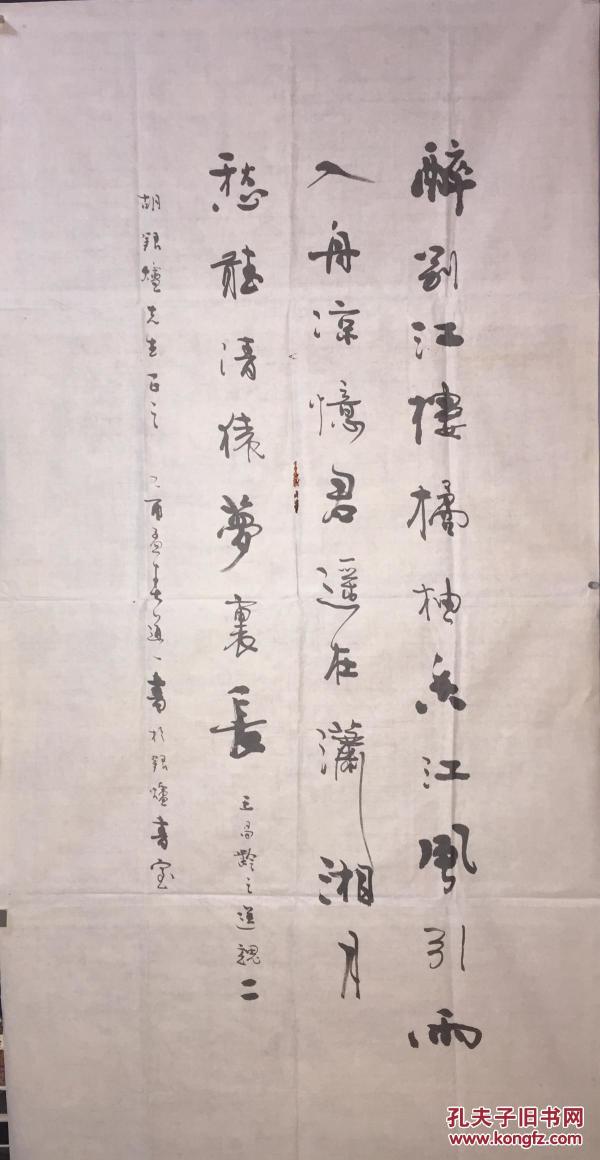 醉别江樓橘柚香江風引雨
入舟涼憶君遥在瀟湘月
愁聽清猿夢裏長
王昌齡之送魏二
胡銀爐先生正之 乙酉孟春道一書於銀爐書室
孔夫子旧书网
www.kongfz.com